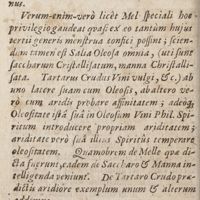 nus.
Verum-enim-verò licèt Mel speciali hoc
privilegio gaudeat quasi ex eo tantùm hujus
verti generis menstrua confici possint; scien-
dum tamen est Salia Oleosa omnia, (uti sunt
saccharum Cristallisatum, manna Christalli-
sata. Tartarus Crudus Vini vulgi, &c.) ab
uno latere suam cum Oleosis, ab altero ve-
rò cum aridis probare affinitatem; adeoq́,
Oleositate istâ suâ in Oleosum Vini Phil. Spi-
ritum introducere propriam ariditatem;
ariditate verò suâ illius Spiritûs temperare
oleositatem. Quamobrem de Melle quæ di-
cta fuerunt, eadem de Saccharo & Manna in-
telligenda veniunt. De Tartaro Crudo præ-
dictis aridiore exemplum unum & alterum